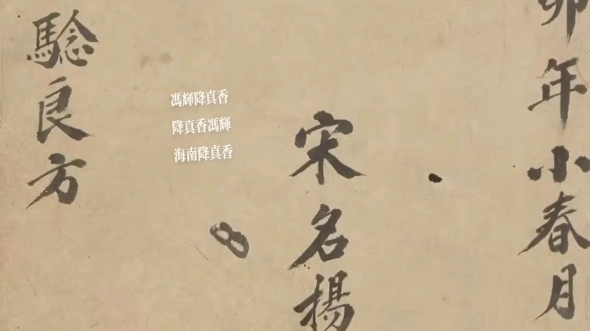 卯年小春月
宋名揚
騐良方
馮輝降真香
降真香馮輝
海南降真香